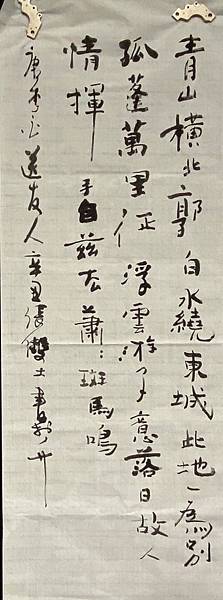 青山橫北郭白水繞東城此地一為別
孤蓬萬里征浮雲游子意落日故人
情揮手自茲去蕭:班馬鳴
唐李白送友人辛丑張雙士書